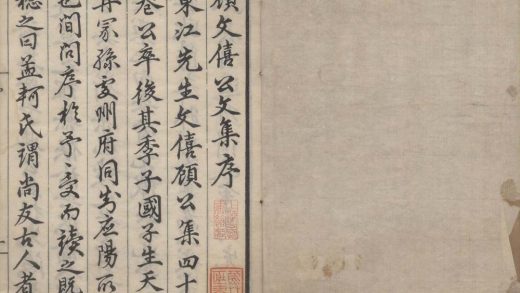 顧文僖公文集序
東江先生文僖顧公集四十
卷公卒後其季子國子生天
冢孫州府同應陽所
也間問序於予〻受而讀之既
之曰孟軻氏謂尚友古人者